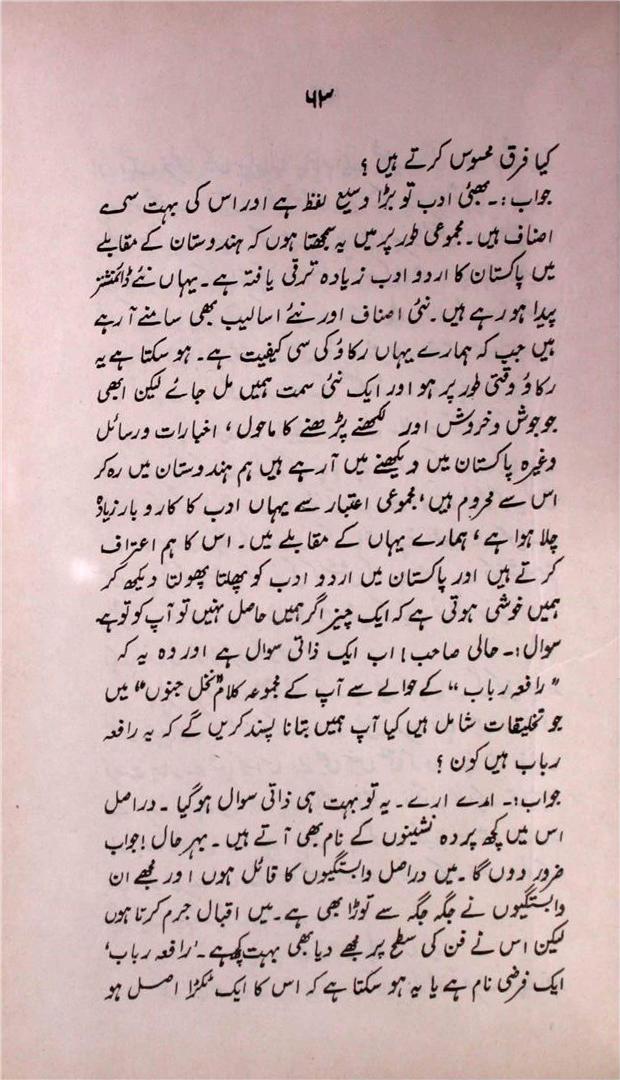 ۶۳
کیا فرق محسوس کرتے ہیں ؟
جواب :۔ بھئی ادب تو بڑا وسیع لفظ ہے اور اس کی بہت سی
اصناف ہیں۔ مجموعی طور پر میں یہ سمجھتا ہوں کہ ہندوستان کے مقابلے
میں پاکستان کا اردو ادب زیادہ ترقی یافتہ ہے۔ یہاں نئے ڈائمنشنز
پیدا ہو رہے ہیں۔ نئی اصناف اور نئے اسالیب بھی سامنے آ رہے
ہیں جب کہ ہمارے یہاں رکاؤ کی سی کیفیت ہے۔ ہو سکتا ہے یہ
رکاؤ وقتی طور پر ہو اور ایک نئی سمت ہمیں مل جائے لیکن ابھی
جو جوش و خروش اور لکھنے پڑھنے کا ماحول ، اخبارات و رسائل
وغیرہ پاکستان میں دیکھنے میں آ رہے ہیں ہم ہندوستان میں رہ کر
اس سے محروم ہیں ، مجموعی اعتبار سے یہاں ادب کا کاروبار زیادہ
چلا ہوا ہے ، ہمارے یہاں کے مقابلے میں۔ اس کا ہم اعتراف
کرتے ہیں اور پاکستان میں اردو ادب کو پھلتا پھولتا دیکھ کر
ہمیں خوشی ہوتی ہے کہ ایک چیز اگر ہمیں حاصل نہیں تو آپ کو تو ہے
سوال :۔ حالی صاحب ! اب ایک ذاتی سوال ہے اور وہ یہ کہ
" رافعہ رباب " کے حوالے سے آپ کے مجموعہ کلام "نخل جنوں" میں
جو تخلیقات شامل ہیں کیا آپ ہمیں بتانا پسند کریں گے کہ یہ رافعہ
رباب ہیں کون ؟
جواب :۔ ارے ارے ۔ یہ تو بہت ہی ذاتی سوال ہو گیا ۔ دراصل
اس میں کچھ پردہ نشینوں کے نام بھی آتے ہیں ۔ بہر حال ! جواب
ضرور دوں گا ۔ میں دراصل وابستگیوں کا قائل ہوں اور مجھے ان
وابستگیوں نے جگہ جگہ سے توڑا بھی ہے ۔ میں اقبال جرم کرتا ہوں
لیکن اس نے فن کی سطح پر مجھے دیا بھی بہت کچھ ہے۔ 'رافعہ رباب'
ایک فرضی نام ہے یا یہ ہو سکتا ہے کہ اس کا ایک ٹکڑا اصل ہو